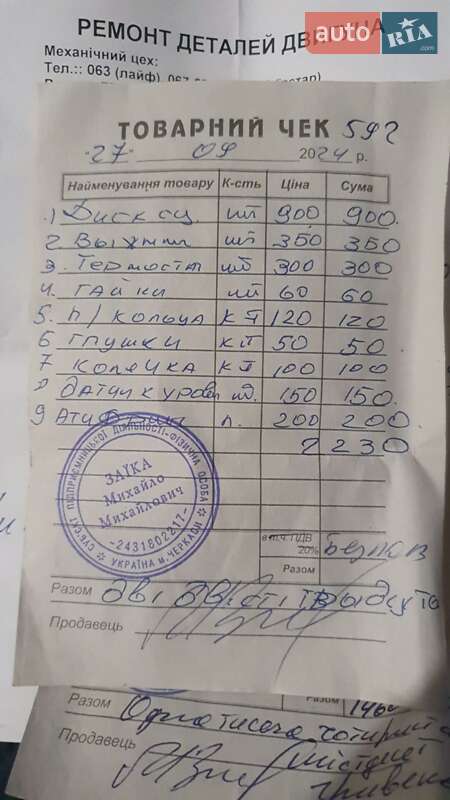 РЕМОНТ ДЕТАЛЕЙ
auto RIA .com
Механічний цех:
Тел.:: 063 (лайф), 067
ТОВАРНИЙ ЧЕК 592
"27" 09 2024 р.
Найменування товару К-сть Ціна Сума
1 Диск сц. шт 900 900.
2 шт 350 350
3. Термостат шт 300 300
4. гайки шт 60 60
5. п/кольца к п 120 120
6 глушки к п 50 50
7 к п 100 100
8 датчик уровн 150 150.
9 л. 200 200.
2230
СУБ'ЄКТ ПІДПРИЄМНИЦЬКОЇ ДІЯЛЬНОСТІ-ФІЗИЧНА ОСОБА
ЗАЇКА
Михайло
Михайлович
-2431802217-
УКРАЇНА м. ЧЕРКАСИ
в т.ч. ПДВ 20% Без ПДВ
Разом
Разом дві
Продавець
Разом Одна тисяча чотириста
Продавець